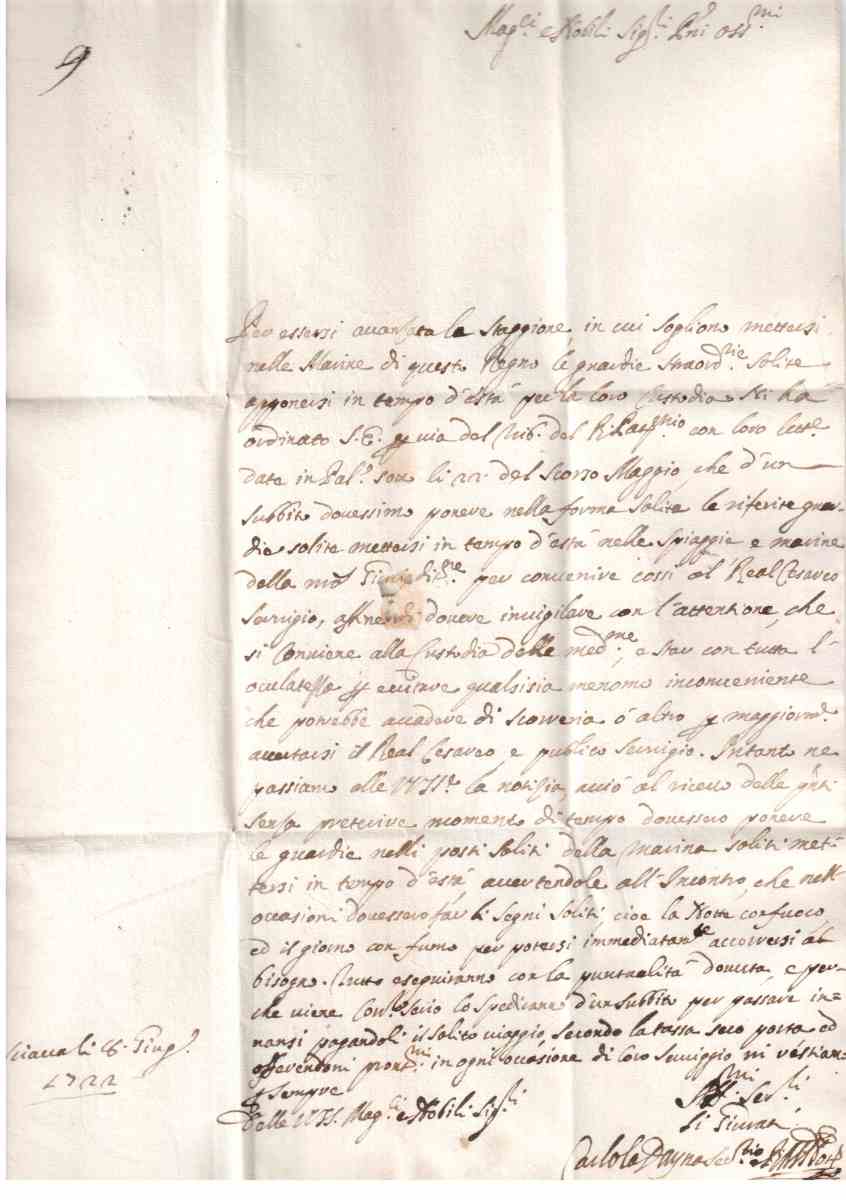 9
Mag.li e Nobili Sig.ri P.ni oss.mi
Per essersi avanzata la staggione, in cui sogliono mettersi
nelle Marine di questo Regno le guardie straord.rie solite
apponersi in tempo d'està per la loro Custodia Ni ha
ordinato S.E. p via del Trib. del R. Pat.nio con loro lett.e
date in Pal.o sotto li 22 del scorso Maggio, che d'un
subbito dovessimo ponere nella forma solita le riferite guar-
die solite mettersi in tempo d'està nelle spiaggie e marine
della per convenire cossi al Real Cesareo
Servigio, dovere invigilare con l'attentione, che
si conviene alla Custodia delle med.me, e star con tutta l'
oculatezza p evitare qualsisia menomo inconveniente
che potrebbe accadere di scorreria ò altro p maggiorm.e
accertarsi il Real Cesareo, e publico Servigio. Intanto ne
passiamo alle VV.SS. la notizia, acciò al ricevo delle p.nti
senza preterire momento di tempo dovessero ponere
le guardie nelli posti soliti della marina soliti met-
tersi in tempo d'està, avvertendole all'Incontro, che nell'
occasioni dovessero far li segni soliti cioè la Notte con fuoco,
ed il giorno con fumo per potersi immediatam.te accorrersi al
bisogno. Tutto eseguiranno con la puntualità dovuta, e per-
che viene lo spediranno d'un subbito per passare in=
nansi pagandoli il solito viaggio, secondo la tassa seco porta ed
offerendoni pront.mi in ogni occasione di loro serviggio ni restiam
p sempre
Delle VV.SS. Mag.li e Nobili Sig.ri
Sciacca li 8 Giug.o
1722
Aff.mi Ser.li
li Giurati
Carlo La Dayna Seg.rio